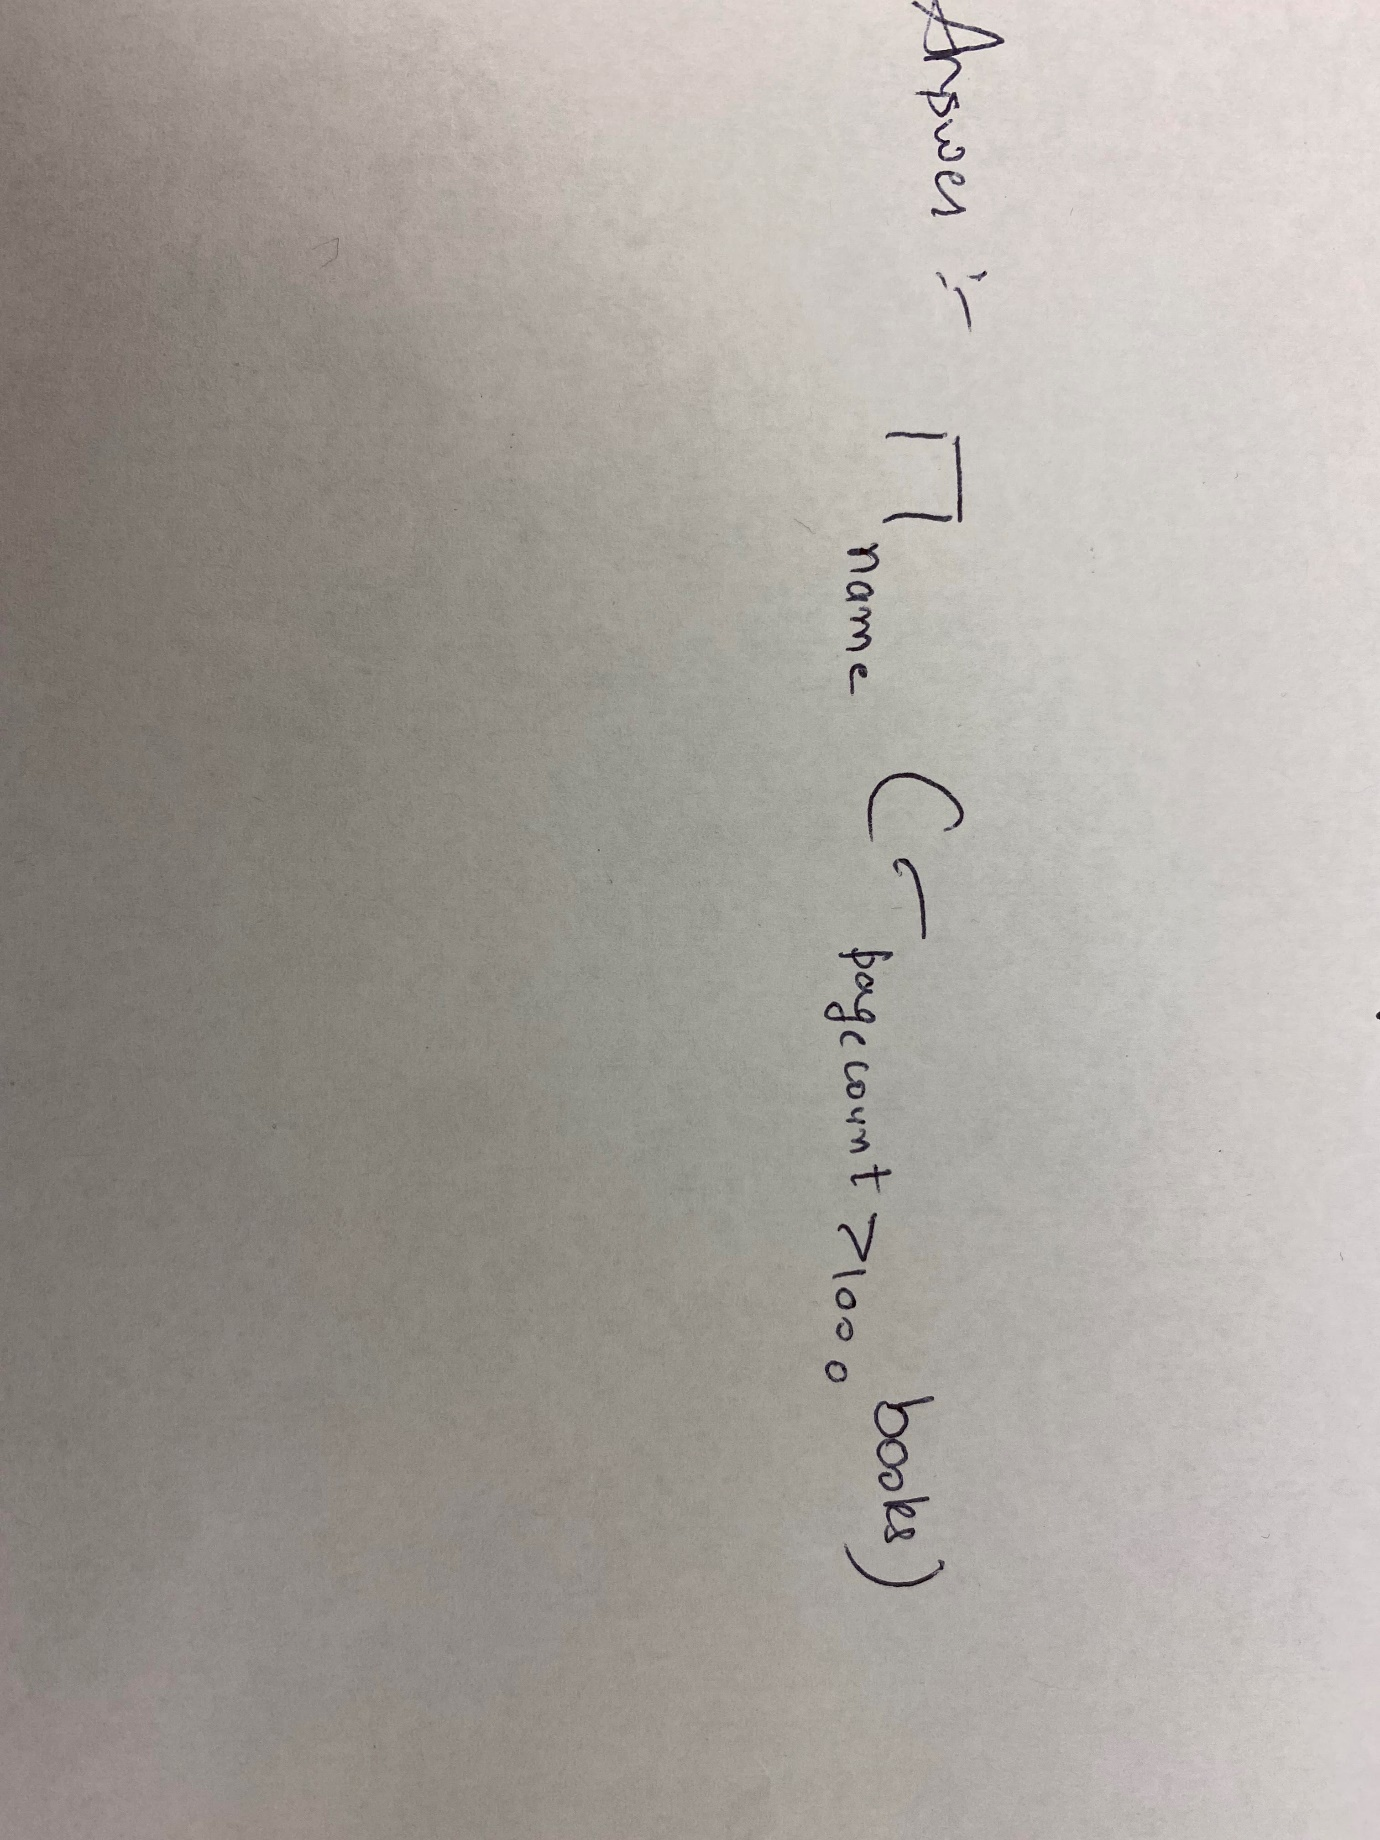 Answer :- Π name (σ pagecount >1000 books)